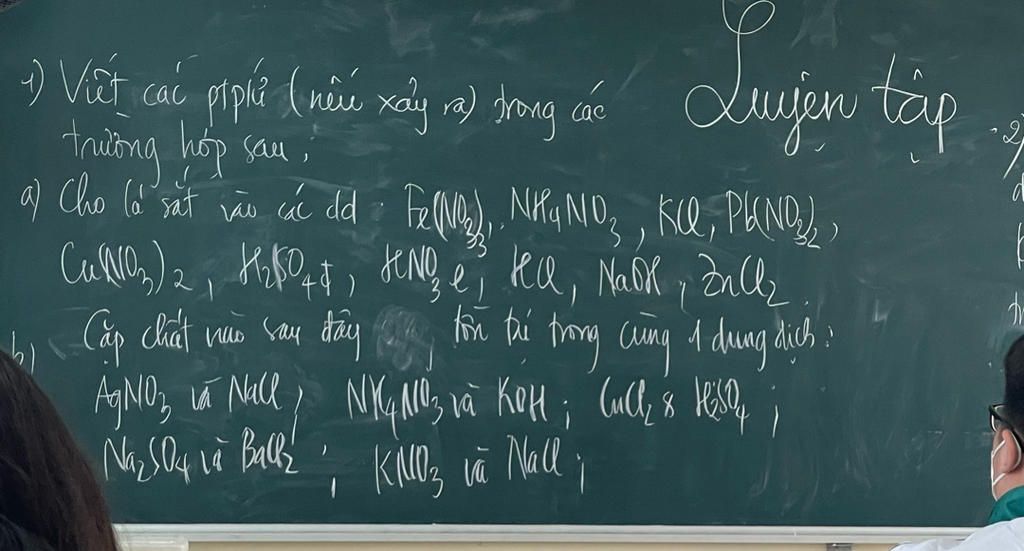 Luyện tập
1) Viết các ptpứ (nếu xảy ra) trong các
trường hợp sau:
a) Cho lá sắt vào các dd: Fe(NO3)3, NH4NO3, KCl, Pb(NO3)2,
Cu(NO3)2, H2SO4đ, HNO3l, HCl, NaOH, ZnCl2.
b) Cặp chất nào sau đây tồn tại trong cùng 1 dung dịch:
AgNO3 và NaCl; NH4NO3 và KOH; CuCl2 & H2SO4;
Na2SO4 và BaCl2; KNO3 và NaCl;
2)